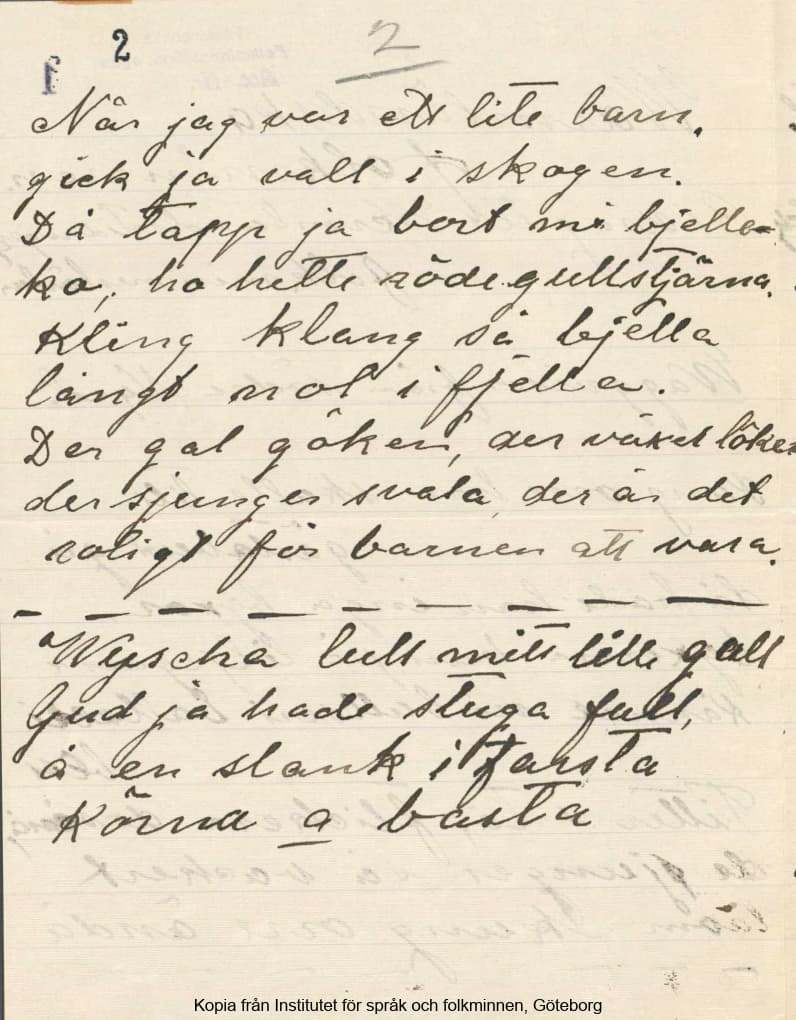 2
2
När jag var ett lite barn,
gick ja vall i skogen.
Då tapp ja bort mi bjelle-
ko, ho hette rödegullstjärna.
Kling klang sa bjella
långt nol i fjella.
Der gal göken, der växet löken
der sjunger svala, der är det
roligt för barnen att vara.
Wyscha lull mitt lille gull
Gud ja hade stuga full,
å en slank i farsta
Körna a basta
Kopia från Institutet för språk och folkminnen, Göteborg